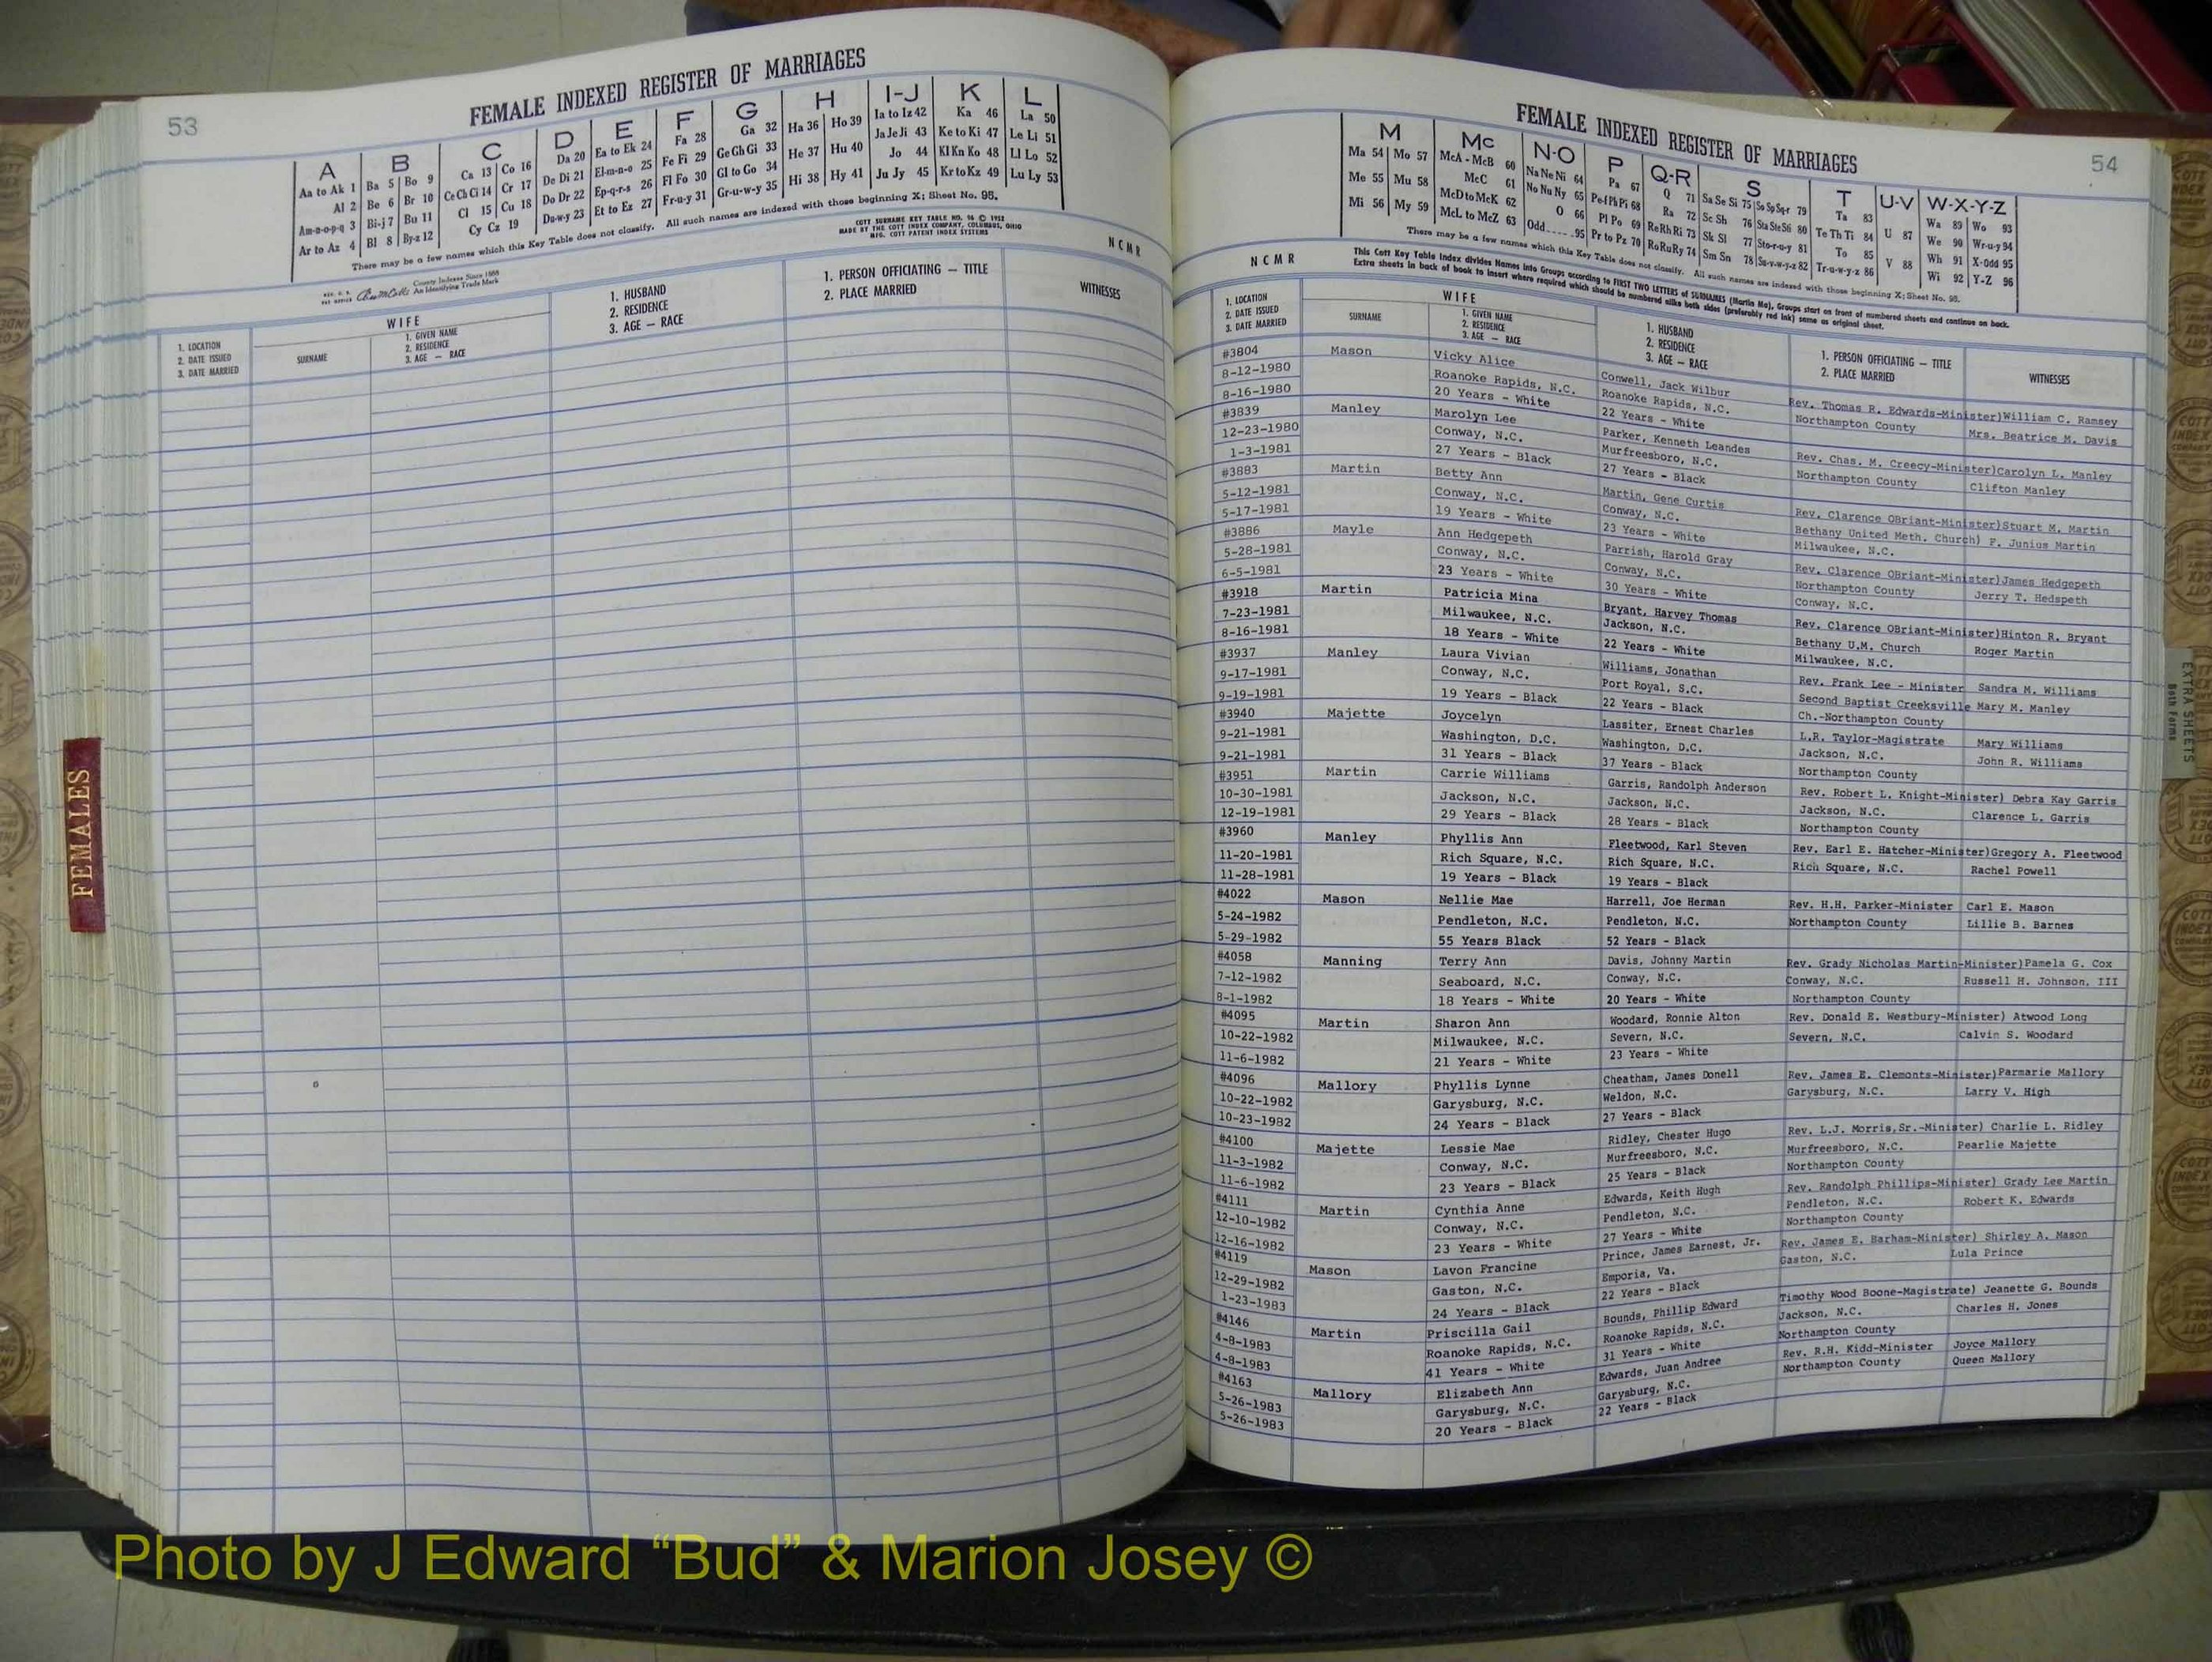 53
FEMALE INDEXED REGISTER OF MARRIAGES
A B C D E F G H I-J K L
Aa to Ak 1 Ba 5 Bo 9 Ca 13 Co 16 Da 20 Ea to Ek 24 Fa 28 Ga 32 Ha 36 Ho 39 Ia to Iz 42 Ka 46 La 50
Al 2 Be 6 Br 10 Ce Ch Ci 14 Cr 17 De Di 21 El-m-n-o 25 Fe Fi 29 Ge Gh Gi 33 He 37 Hu 40 Ja Je Ji 43 Ke to Ki 47 Le Li 51
Am-n-o-p-q 3 Bi-j 7 Bu 11 Cl 15 Cu 18 Do Dr 22 Ep-q-r-s 26 Fl Fo 30 Gl to Go 34 Hi 38 Hy 41 Jo 44 Kl Kn Ko 48 Ll Lo 52
Ar to Az 4 Bl 8 By-z 12 Cy Cz 19 Du-w-y 23 Et to Ez 27 Fr-u-y 31 Gr-u-w-y 35 Ju Jy 45 Kr to Kz 49 Lu Ly 53
There may be a few names which this Key Table does not classify. All such names are indexed with those beginning X; Sheet No. 95.
County Indexes Since 1888
An Identifying Trade Mark
COTT SURNAME KEY TABLE NO. 96 © 1952
MADE BY THE COTT INDEX COMPANY, COLUMBUS, OHIO
MFG. COTT PATENT INDEX SYSTEMS
N C M R
1. LOCATION
2. DATE ISSUED
3. DATE MARRIED
WIFE
SURNAME
1. GIVEN NAME
2. RESIDENCE
3. AGE — RACE
1. HUSBAND
2. RESIDENCE
3. AGE — RACE
1. PERSON OFFICIATING — TITLE
2. PLACE MARRIED
WITNESSES
FEMALES
FEMALE INDEXED REGISTER OF MARRIAGES
54
M Mc N-O P Q-R S T U-V W-X-Y-Z
Ma 54 Mo 57 McA - McB 60 Na Ne Ni 64 Pa 67 Q 71 Sa Se Si 75 So Sp Sq-r 79 Ta 83 U 87 Wa 89 Wo 93
Me 55 Mu 58 McC 61 No Nu Ny 65 Pe-f Ph Pi 68 Ra 72 Sc Sh 76 Sta Ste S6 80 Te Th Ti 84 V 88 We 90 Wr-u-y 94
Mi 56 My 59 McD to McK 62 O 66 Pl Po 69 Re Rh Ri 73 Sk Sl 77 Sto-r-u-y 81 To 85 Wh 91 X-Odd 95
McL to McZ 63 Odd 95 Pr to Pz 70 Ro Ru Ry 74 Sm Sn 78 Su-v-w-y-z 82 Tr-u-w-y-z 86 Wi 92 Y-Z 96
There may be a few names which this Key Table does not classify. All such names are indexed with those beginning X; Sheet No. 95.
This Cott Key Table Index divides Names into Groups according to FIRST TWO LETTERS of SURNAMES (Martin Ma). Groups start on front of numbered sheets and continue on back.
Extra sheets in back of book to insert where required which should be numbered alike both sides (preferably red ink) same as original sheet.
N C M R
1. LOCATION
2. DATE ISSUED
3. DATE MARRIED
WIFE
SURNAME
1. GIVEN NAME
2. RESIDENCE
3. AGE — RACE
1. HUSBAND
2. RESIDENCE
3. AGE — RACE
1. PERSON OFFICIATING — TITLE
2. PLACE MARRIED
WITNESSES
#3804 Mason Vicky Alice Conwell, Jack Wilbur Rev. Thomas R. Edwards-Minister)William C. Ramsey
8-12-1980 Roanoke Rapids, N.C. Roanoke Rapids, N.C. Northampton County Mrs. Beatrice M. Davis
8-16-1980 20 Years - White 22 Years - White
#3839 Manley Marolyn Lee Parker, Kenneth Leandes Rev. Chas. M. Creecy-Minister)Carolyn L. Manley
12-23-1980 Conway, N.C. Murfreesboro, N.C. Northampton County Clifton Manley
1-3-1981 27 Years - Black 27 Years - Black
#3883 Martin Betty Ann Martin, Gene Curtis Rev. Clarence OBriant-Minister)Stuart M. Martin
5-12-1981 Conway, N.C. Conway, N.C. Bethany United Meth. Church) F. Junius Martin
5-17-1981 19 Years - White 23 Years - White Milwaukee, N.C.
#3886 Mayle Ann Hedgepeth Parrish, Harold Gray Rev. Clarence OBriant-Minister)James Hedgepeth
5-28-1981 Conway, N.C. Conway, N.C. Northampton County Jerry T. Hedspeth
6-5-1981 23 Years - White 30 Years - White Conway, N.C.
#3918 Martin Patricia Mina Bryant, Harvey Thomas Rev. Clarence OBriant-Minister)Hinton R. Bryant
7-23-1981 Milwaukee, N.C. Jackson, N.C. Bethany U.M. Church Roger Martin
8-16-1981 18 Years - White 22 Years - White Milwaukee, N.C.
#3937 Manley Laura Vivian Williams, Jonathan Rev. Frank Lee - Minister Sandra M. Williams
9-17-1981 Conway, N.C. Port Royal, S.C. Second Baptist Creeksville Mary M. Manley
9-19-1981 19 Years - Black 22 Years - Black Ch.-Northampton County
#3940 Majette Joycelyn Lassiter, Ernest Charles L.R. Taylor-Magistrate Mary Williams
9-21-1981 Washington, D.C. Washington, D.C. Jackson, N.C. John R. Williams
9-21-1981 31 Years - Black 37 Years - Black Northampton County
#3951 Martin Carrie Williams Garris, Randolph Anderson Rev. Robert L. Knight-Minister) Debra Kay Garris
10-30-1981 Jackson, N.C. Jackson, N.C. Jackson, N.C. Clarence L. Garris
12-19-1981 29 Years - Black 28 Years - Black Northampton County
#3960 Manley Phyllis Ann Fleetwood, Karl Steven Rev. Earl E. Hatcher-Minister)Gregory A. Fleetwood
11-20-1981 Rich Square, N.C. Rich Square, N.C. Rich Square, N.C. Rachel Powell
11-28-1981 19 Years - Black 19 Years - Black
#4022 Mason Nellie Mae Harrell, Joe Herman Rev. H.H. Parker-Minister Carl E. Mason
5-24-1982 Pendleton, N.C. Pendleton, N.C. Northampton County Lillie B. Barnes
5-29-1982 55 Years Black 52 Years - Black
#4058 Manning Terry Ann Davis, Johnny Martin Rev. Grady Nicholas Martin-Minister)Pamela G. Cox
7-12-1982 Seaboard, N.C. Conway, N.C. Conway, N.C. Russell H. Johnson, III
8-1-1982 18 Years - White 20 Years - White Northampton County
#4095 Martin Sharon Ann Woodard, Ronnie Alton Rev. Donald E. Westbury-Minister) Atwood Long
10-22-1982 Milwaukee, N.C. Severn, N.C. Severn, N.C. Calvin S. Woodard
11-6-1982 21 Years - White 23 Years - White
#4096 Mallory Phyllis Lynne Cheatham, James Donell Rev. James E. Clemonts-Minister)Parmarie Mallory
10-22-1982 Garysburg, N.C. Weldon, N.C. Garysburg, N.C. Larry V. High
10-23-1982 24 Years - Black 27 Years - Black
#4100 Majette Lessie Mae Ridley, Chester Hugo Rev. L.J. Morris,Sr.-Minister) Charlie L. Ridley
11-3-1982 Conway, N.C. Murfreesboro, N.C. Murfreesboro, N.C. Pearlie Majette
11-6-1982 23 Years - Black 25 Years - Black Northampton County
#4111 Martin Cynthia Anne Edwards, Keith Hugh Rev. Randolph Phillips-Minister) Grady Lee Martin
12-10-1982 Conway, N.C. Pendleton, N.C. Pendleton, N.C. Robert K. Edwards
12-16-1982 23 Years - White 27 Years - White Northampton County
#4119 Mason Lavon Francine Prince, James Earnest, Jr. Rev. James E. Barham-Minister) Shirley A. Mason
12-29-1982 Gaston, N.C. Emporia, Va. Gaston, N.C. Lula Prince
1-23-1983 24 Years - Black 22 Years - Black
#4146 Martin Priscilla Gail Bounds, Phillip Edward Timothy Wood Boone-Magistrate) Jeanette G. Bounds
4-8-1983 Roanoke Rapids, N.C. Roanoke Rapids, N.C. Jackson, N.C. Charles H. Jones
4-8-1983 41 Years - White 31 Years - White Northampton County
#4163 Mallory Elizabeth Ann Edwards, Juan Andree Rev. R.H. Kidd-Minister Joyce Mallory
5-26-1983 Garysburg, N.C. Garysburg, N.C. Northampton County Queen Mallory
5-26-1983 20 Years - Black 22 Years - Black
EXTRA SHEETS
Both Forms
Photo by J Edward “Bud” & Marion Josey ©